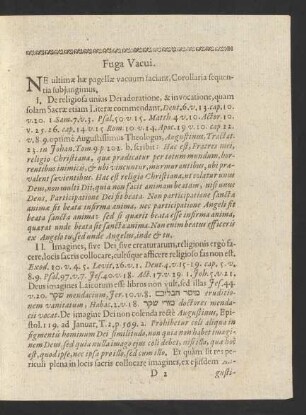 Fuga Vacui.
NE ultimæ hæ pagellæ vacuum faciant, Corollaria sequen-
tia subjungimus.
I. De religiosa unius Dei adoratione, & invocatione, quam
solam Sacræ etiam Literæ commendant, Deut. 6. v. 13. cap. 10.
v. 20. 1 Sam. 7. v. 3. Psal. 50. v. 15. Matth. 4. v. 10. Actor. 10.
v. 25. 26. cap. 14. v. 15. Rom. 10. v. 14. Apoc. 19. v. 10. cap. 22.
v. 8. 9. optimè Augustissimus Theologus, Augustinus, Tractat.
23. in Johan. Tom. 9 p. 202. b. scribit: Hæc est, Fratres mei,
religio Christiana, quæ prædicatur per totum mundum, hor-
rentibus inimicis, & ubi vincuntur, murmurantibus, ubi præ-
valent sævientibus. Hæc est religio Christiana, ut colatur unus
Deus, non multi Dii, quia non facit animam beatam, nisi unus
Deus. Participatione Dei fit beata. Non participatione sanctæ
animæ fit beata infirma anima, nec participatione Angeli fit
beata sancta anima: sed si quærit beata esse infirma anima,
quærat unde beata sit sancta anima. Non enim beatus efficeris
ex Angelo tu, sed unde Angelus, inde & tu.
II. Imagines, sive Dei, sive creaturarum, religionis ergò fa-
cere, locis sacris collocare, easdémque afficere religioso fas non est,
Exod. 20. v. 4. 5. Levit. 26. v. 1. Deut. 4. v. 15-19. cap. 5. v.
8. 9. Psal. 97. v. 7. Jes. 40. v. 18. Act. 17. v. 29. 1. Joh. 5. v. 21.
Deus imagines Laicorum esse libros non vult, sed illas Jes. 44.
v. 20. שקר mendacium, Jer. 10. v. 8. מוסר הבלים eruditio-
nem vanitatum, Habac. 2. v. 18. מורה שקר doctores menda-
cii vocat. De imagine Dei non colenda rectè Augustinus, Epi-
stol. 119. ad Januar. T. 2 p. 569. 2. Prohibetur coli aliqua in
figmentis hominum Dei similitudo, non quia non habet imagi-
nem Deus, sed quia nulla imago ejus coli debet, nisi illa, quæ hoc
est, quod ipse, nec ipsa pro illo, sed cum illo. Et quàm sit res pe-
riculi plena in locis sacris collocare imagines, ex ejusdem Au-
D 2 gusti-